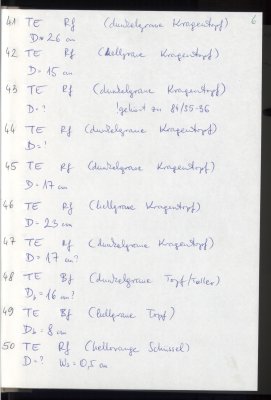 6
41 TE Rf (dunkelgraue Kragentopf)
D= 26 cm
42 TE Rf (hellgraue Kragentopf)
D= 15 cm
43 TE Rf (dunkelgraue Kragentopf)
D= ? !gehört zu 84/55-36
44 TE Rf (dunkelgraue Kragentopf)
D= ?
45 TE Rf (dunkelgraue Kragentopf)
D= 17 cm
46 TE Rf (hellgraue Kragentopf)
D= 23 cm
47 TE Rf (dunkelgraue Kragentopf)
D= 17 cm?
48 TE Bf (dunkelgraue Topf/Teller)
Db = 16 cm?
49 TE Bf (hellgraue Topf)
Db = 8 cm
50 TE Rf (hellorange Schüssel)
D= ? Ws = 0,5 cm